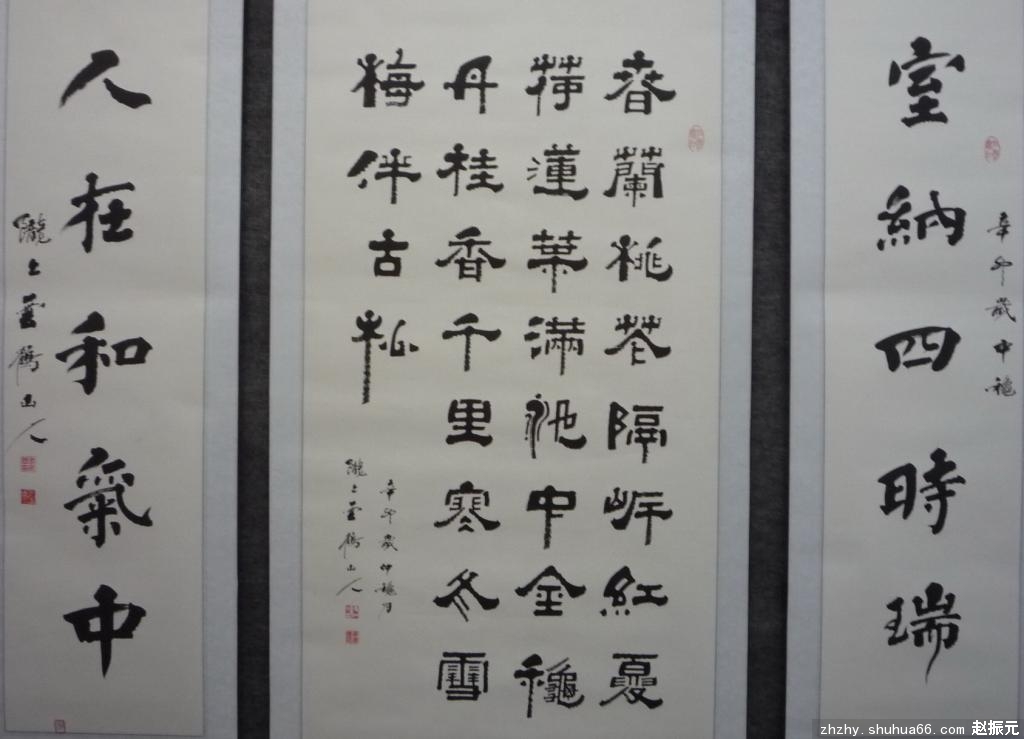 辛卯歲中穐
室納四時瑞
春蘭桃花隔岸紅夏
荷蓮葉滿池中金穐
丹桂香千里寒冬雪
梅伴古松
辛卯歲仲穐月
隴上雲鶴山人
人在和氣中
隴上雲鶴山人
zhzhy.shuhua66.com 赵振元